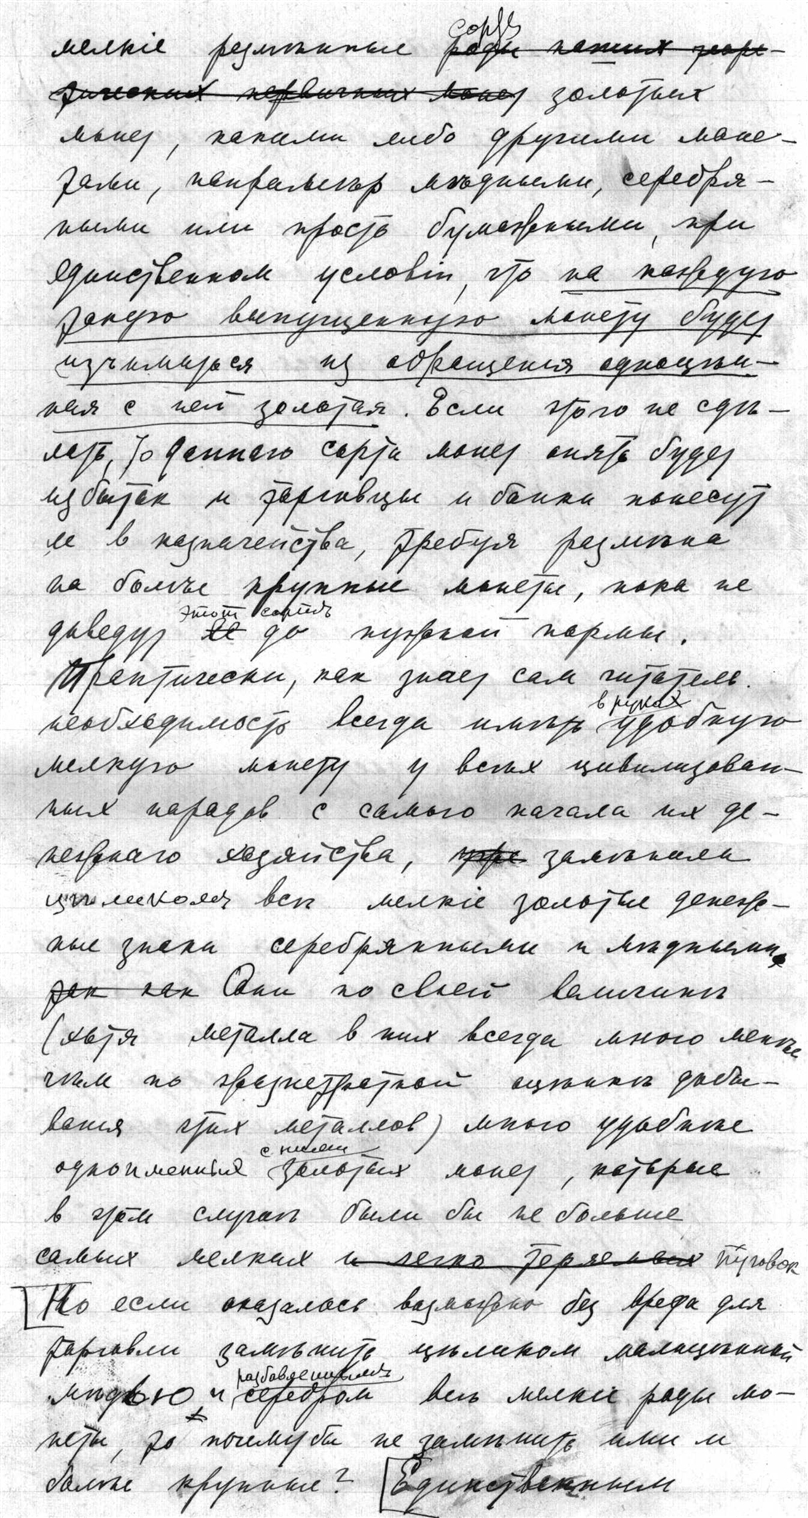 мелкіе размѣнные сорта роды наших теоре-
тических первичных монет золотых
монет, какими либо другими моне-
тами, например мѣдными, серебря-
ными или просто бумажными, при
единственном условіи, что на каждую
такую выпущенную монету будет
изыматься из обращения одноцѣн-
ная с ней золотая. Если этого не сдѣ-
лать, то даннаго сорта монет опять будет
избыток и торговцы и банки понесут
ее в казначейства, требуя размѣна
на болѣе крупные монеты, пока не
доведут ее этот сортъ до нужной нормы.
Практически, как знает сам читатель
необходимость всегда имѣть в руках удобную
мелкую монету у всѣх цивилизован-
ных народов с самого начала их де-
нежнаго хозяйства, замѣнила
цѣликомъ всѣ мелкіе золотые денеж-
ные знаки серебрянными и мѣдными.
так как Они по своей величинѣ
(хотя металла в них всегда много менѣе
чѣм по оцѣнкѣ добы-
вания этих металлов) много удобнѣе
одноименныя с ними золотых монет, которые
в этом случаѣ были бы не больше
самых мелких и легко теряемых пуговок
Но если оказалось возможно без вреда для
торговли замѣнить цѣликом малоцѣнной
мѣдью и разбавленнымъ серебром всѣ мелкіе роды мо-
неты, то почему бы не замѣнить ими и
болѣе крупные? Единственным